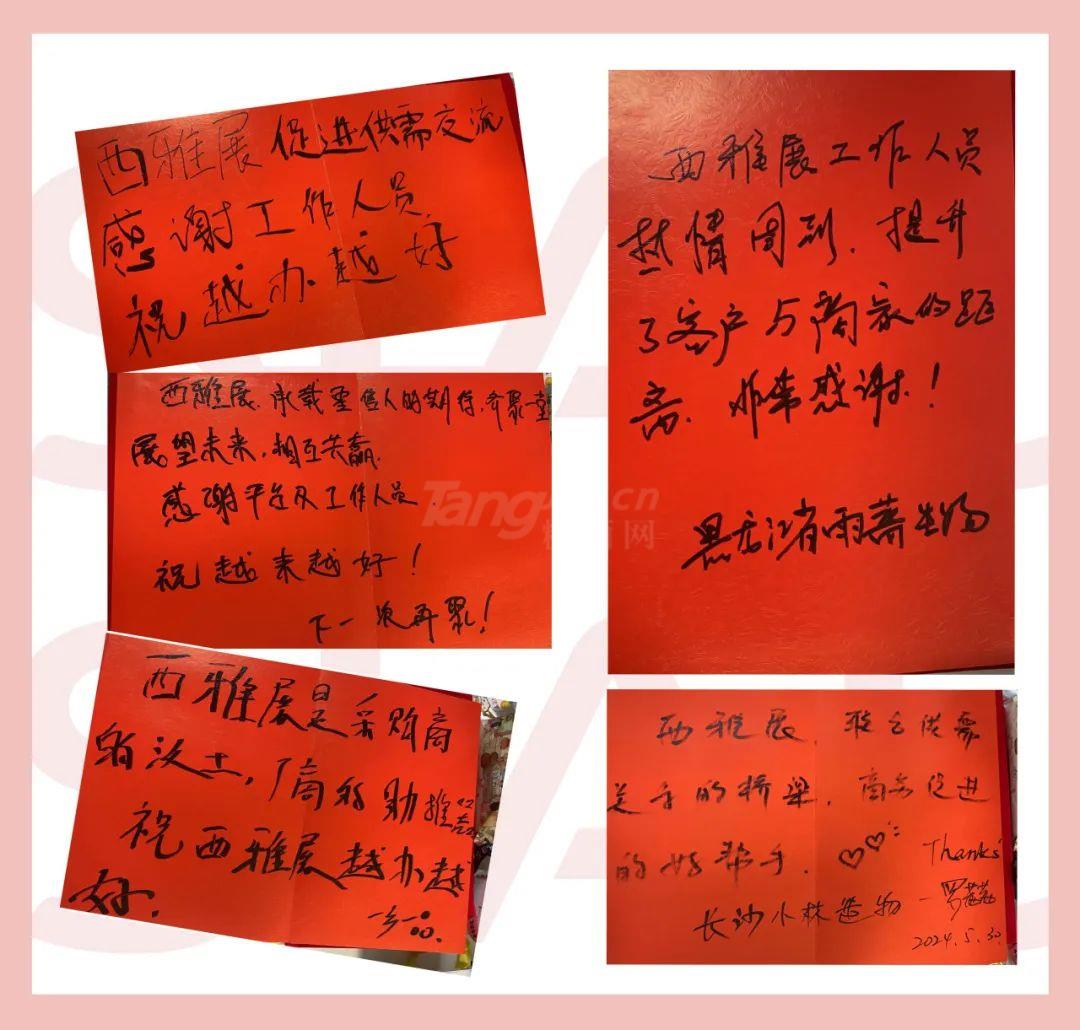 西雅展促进供需交流
感谢工作人员
祝越办越好
西雅展工作人员
热情周到.提升
了客户与商家的距
离.非常感谢!
黑龙江省雨蓓生物
西雅展.承载零售人的期待.齐聚一堂
展望未来,相互共赢.
感谢平台及工作人员
祝越来越好!
下一次再聚!
西雅展是采购商
的沃土,厂商的助推器
祝西雅展越办越
好.
西雅展,联合供需
的桥梁,商务促进
的好帮手.
Thanks
长沙小林造物
2024.5.30.
Tang .cn
网